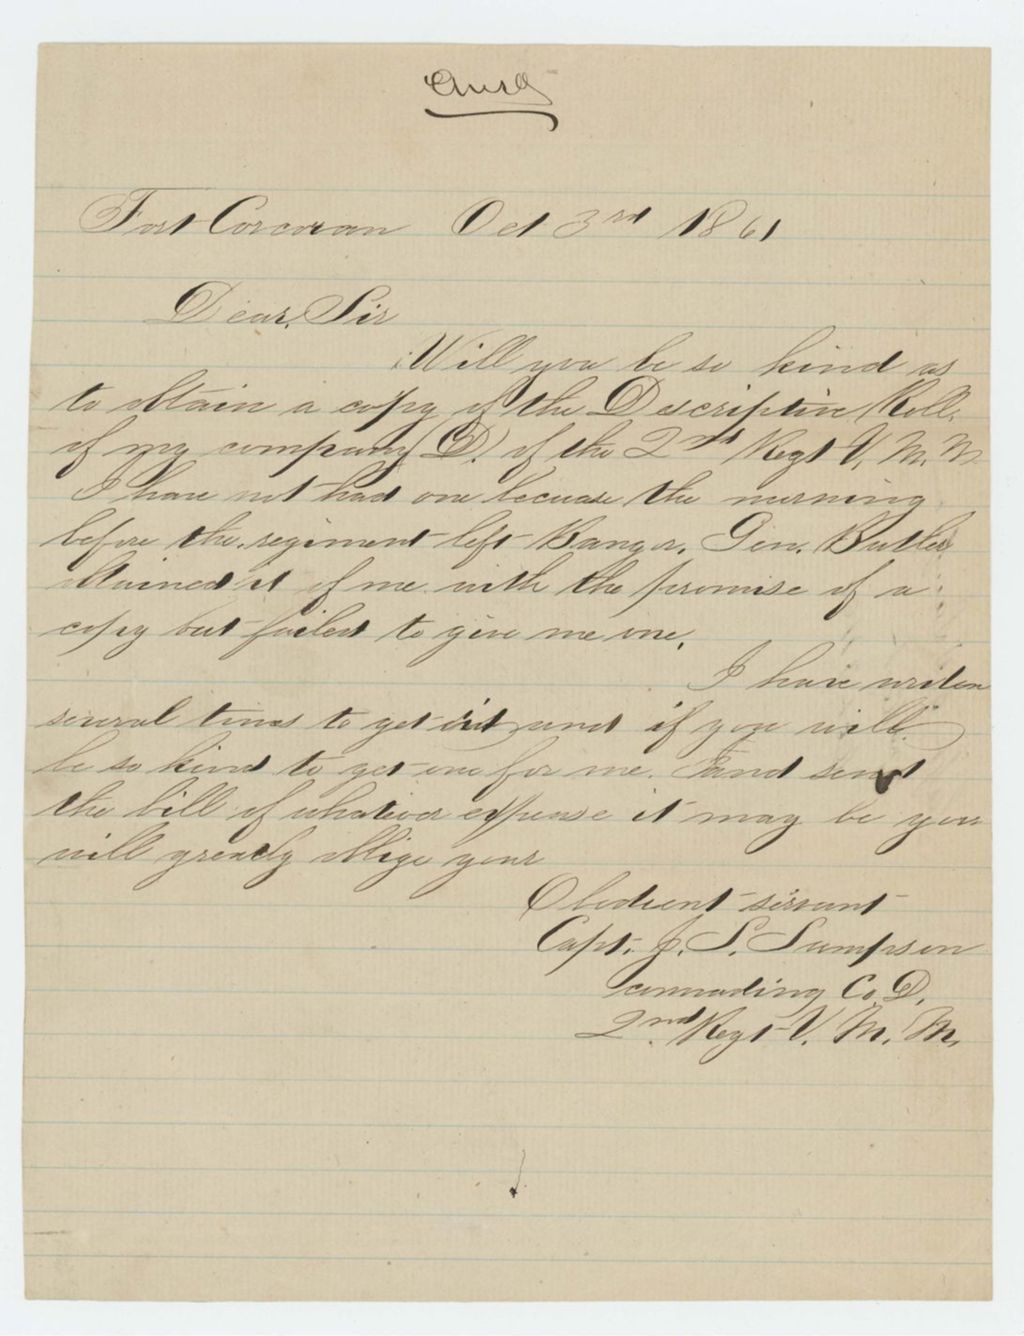 Ansd
Fort Corcoran Oct 3rd 1861
Dear, Sir
Will you be so kind as
to obtain a copy of the Descriptive Roll,
of my company (D.) of the 2nd Regt V. M. M
I have not had one becuase the morning
before the regiment left Bangor, Gen. Butler
obtained it of me with the promise of a
copy but failed to give me one,
I have writen
several times to get it and if you will
be so kind to get one for me. and send
the bill of whatever expense it may be you
will greatly oblige your
Obedient servant
Capt. J. S. Sampson
commading Co. D,
2nd Regt V. M. M,